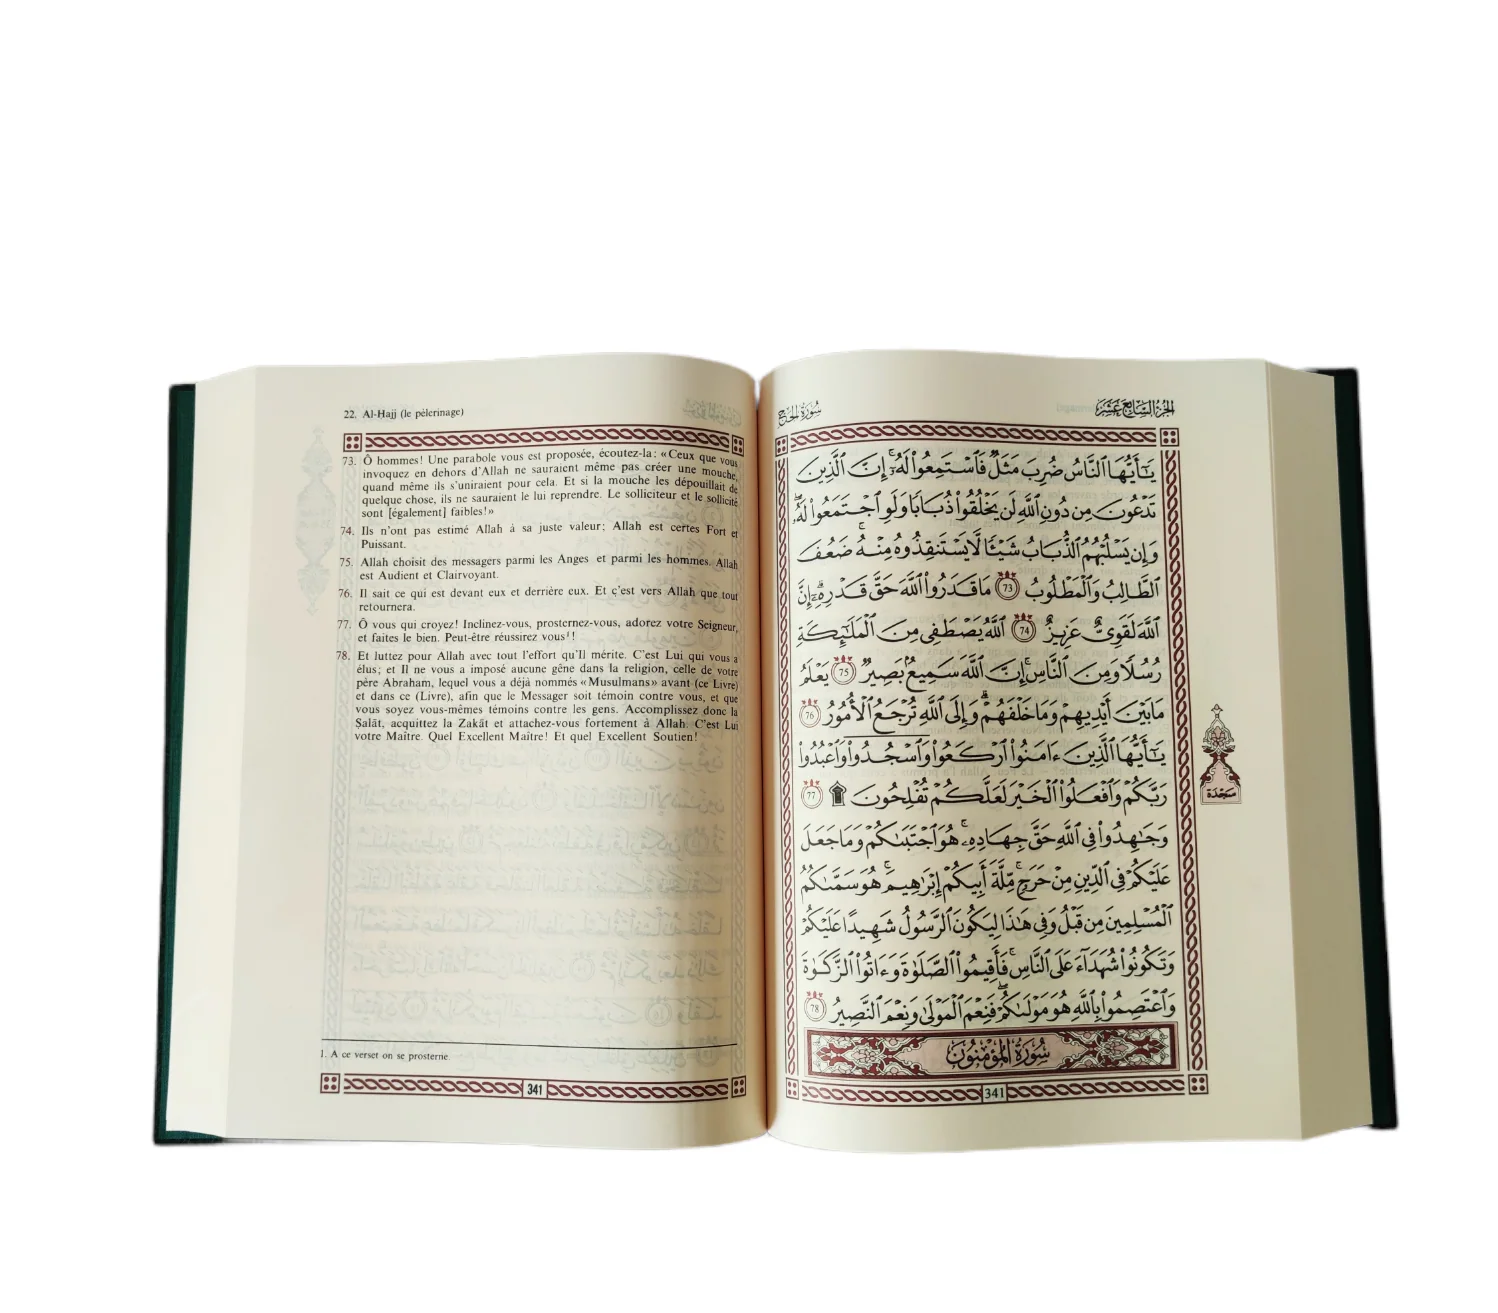 22. Al-Ḥajj (le pèlerinage)
73. Ô hommes! Une parabole vous est proposée, écoutez-la: «Ceux que vous
invoquez en dehors d'Allah ne sauraient même pas créer une mouche,
quand même ils s'uniraient pour cela. Et si la mouche les dépouillait de
quelque chose, ils ne sauraient le lui reprendre. Le solliciteur et le sollicité
sont [également] faibles!»
74. Ils n'ont pas estimé Allah à sa juste valeur; Allah est certes Fort et
Puissant.
75. Allah choisit des messagers parmi les Anges et parmi les hommes. Allah
est Audient et Clairvoyant.
76. Il sait ce qui est devant eux et derrière eux. Et c'est vers Allah que tout
retournera.
77. Ô vous qui croyez! Inclinez-vous, prosternez-vous, adorez votre Seigneur,
et faites le bien. Peut-être réussirez vous¹!
78. Et luttez pour Allah avec tout l'effort qu'Il mérite. C'est Lui qui vous a
élus; et Il ne vous a imposé aucune gêne dans la religion, celle de votre
père Abraham, lequel vous a déjà nommés «Musulmans» avant (ce Livre)
et dans ce (Livre), afin que le Messager soit témoin contre vous, et que
vous soyez vous-mêmes témoins contre les gens. Accomplissez donc la
Ṣalāt, acquittez la Zakāt et attachez-vous fortement à Allah. C'est Lui
votre Maître. Quel Excellent Maître! Et quel Excellent Soutien!
1. A ce verset on se prosterne
341
الجزء السابع عشر
سورة الحج
يَٰٓأَيُّهَا ٱلنَّاسُ ضُرِبَ مَثَلٌ فَٱسْتَمِعُوا۟ لَهُۥٓ ۚ إِنَّ ٱلَّذِينَ
تَدْعُونَ مِن دُونِ ٱللَّهِ لَن يَخْلُقُوا۟ ذُبَابًا وَلَوِ ٱجْتَمَعُوا۟ لَهُۥ ۖ
وَإِن يَسْلُبْهُمُ ٱلذُّبَابُ شَيْـًٔا لَّا يَسْتَنقِذُوهُ مِنْهُ ۚ ضَعُفَ
ٱلطَّالِبُ وَٱلْمَطْلُوبُ 73 مَا قَدَرُوا۟ ٱللَّهَ حَقَّ قَدْرِهِۦٓ ۗ إِنَّ
ٱللَّهَ لَقَوِىٌّ عَزِيزٌ 74 ٱللَّهُ يَصْطَفِى مِنَ ٱلْمَلَٰٓئِكَةِ
رُسُلًا وَمِنَ ٱلنَّاسِ ۚ إِنَّ ٱللَّهَ سَمِيعٌۢ بَصِيرٌ 75 يَعْلَمُ
مَا بَيْنَ أَيْدِيهِمْ وَمَا خَلْفَهُمْ ۗ وَإِلَى ٱللَّهِ تُرْجَعُ ٱلْأُمُورُ 76
يَٰٓأَيُّهَا ٱلَّذِينَ ءَامَنُوا۟ ٱرْكَعُوا۟ وَٱسْجُدُوا۟ وَٱعْبُدُوا۟
رَبَّكُمْ وَٱفْعَلُوا۟ ٱلْخَيْرَ لَعَلَّكُمْ تُفْلِحُونَ 77
سجدة
وَجَٰهِدُوا۟ فِى ٱللَّهِ حَقَّ جِهَادِهِۦ ۚ هُوَ ٱجْتَبَىٰكُمْ وَمَا جَعَلَ
عَلَيْكُمْ فِى ٱلدِّينِ مِنْ حَرَجٍ ۚ مِّلَّةَ أَبِيكُمْ إِبْرَٰهِيمَ ۚ هُوَ سَمَّىٰكُمُ
ٱلْمُسْلِمِينَ مِن قَبْلُ وَفِى هَٰذَا لِيَكُونَ ٱلرَّسُولُ شَهِيدًا عَلَيْكُمْ
وَتَكُونُوا۟ شُهَدَآءَ عَلَى ٱلنَّاسِ ۚ فَأَقِيمُوا۟ ٱلصَّلَوٰةَ وَءَاتُوا۟ ٱلزَّكَوٰةَ
وَٱعْتَصِمُوا۟ بِٱللَّهِ هُوَ مَوْلَىٰكُمْ ۖ فَنِعْمَ ٱلْمَوْلَىٰ وَنِعْمَ ٱلنَّصِيرُ 78
سُورَةُ المُؤْمِنُون
341